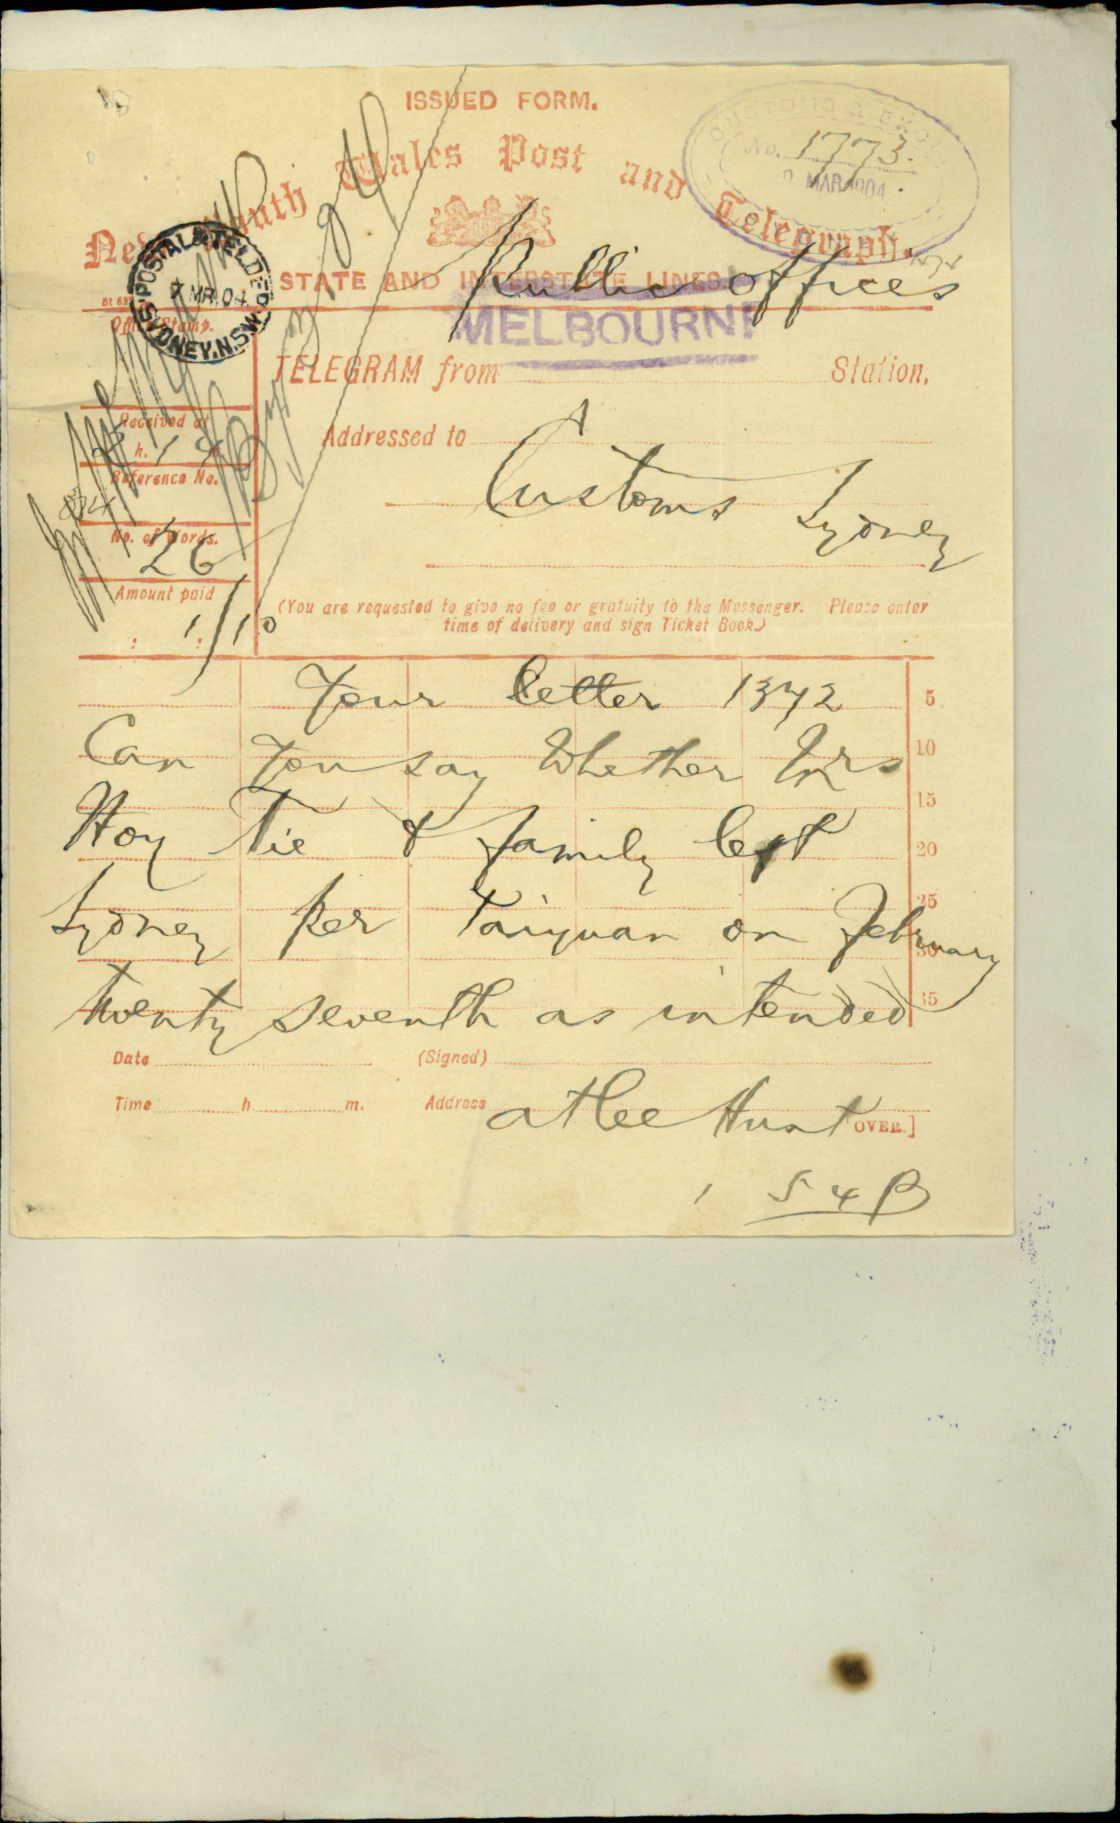 ISSUED FORM.
New South Wales Post and Telegraph.
CUSTOMS & EXCISE
No. 1773.
MAR 1904
POSTAL & TEL. DEP.
7 MR. 04
SYDNEY. N.S.W.
STATE AND INTERSTATE LINES.
Public Offices
MELBOURNE
Office Stamp.
TELEGRAM from Station.
Received at
h.
Addressed to
Customs Sydney
Reference No.
No. of Words.
26
Amount paid
1/10
(You are requested to give no fee or gratuity to the Messenger. Please enter
time of delivery and sign Ticket Book.)
Your letter 1372
5
Can you say whether Mrs
10
15
Hoy Tie & family left
20
25
Sydney per Taiyuan on February
30
twenty seventh as intended
35
Date (Signed)
Time h. m. Address Atlee Hunt
OVER.]